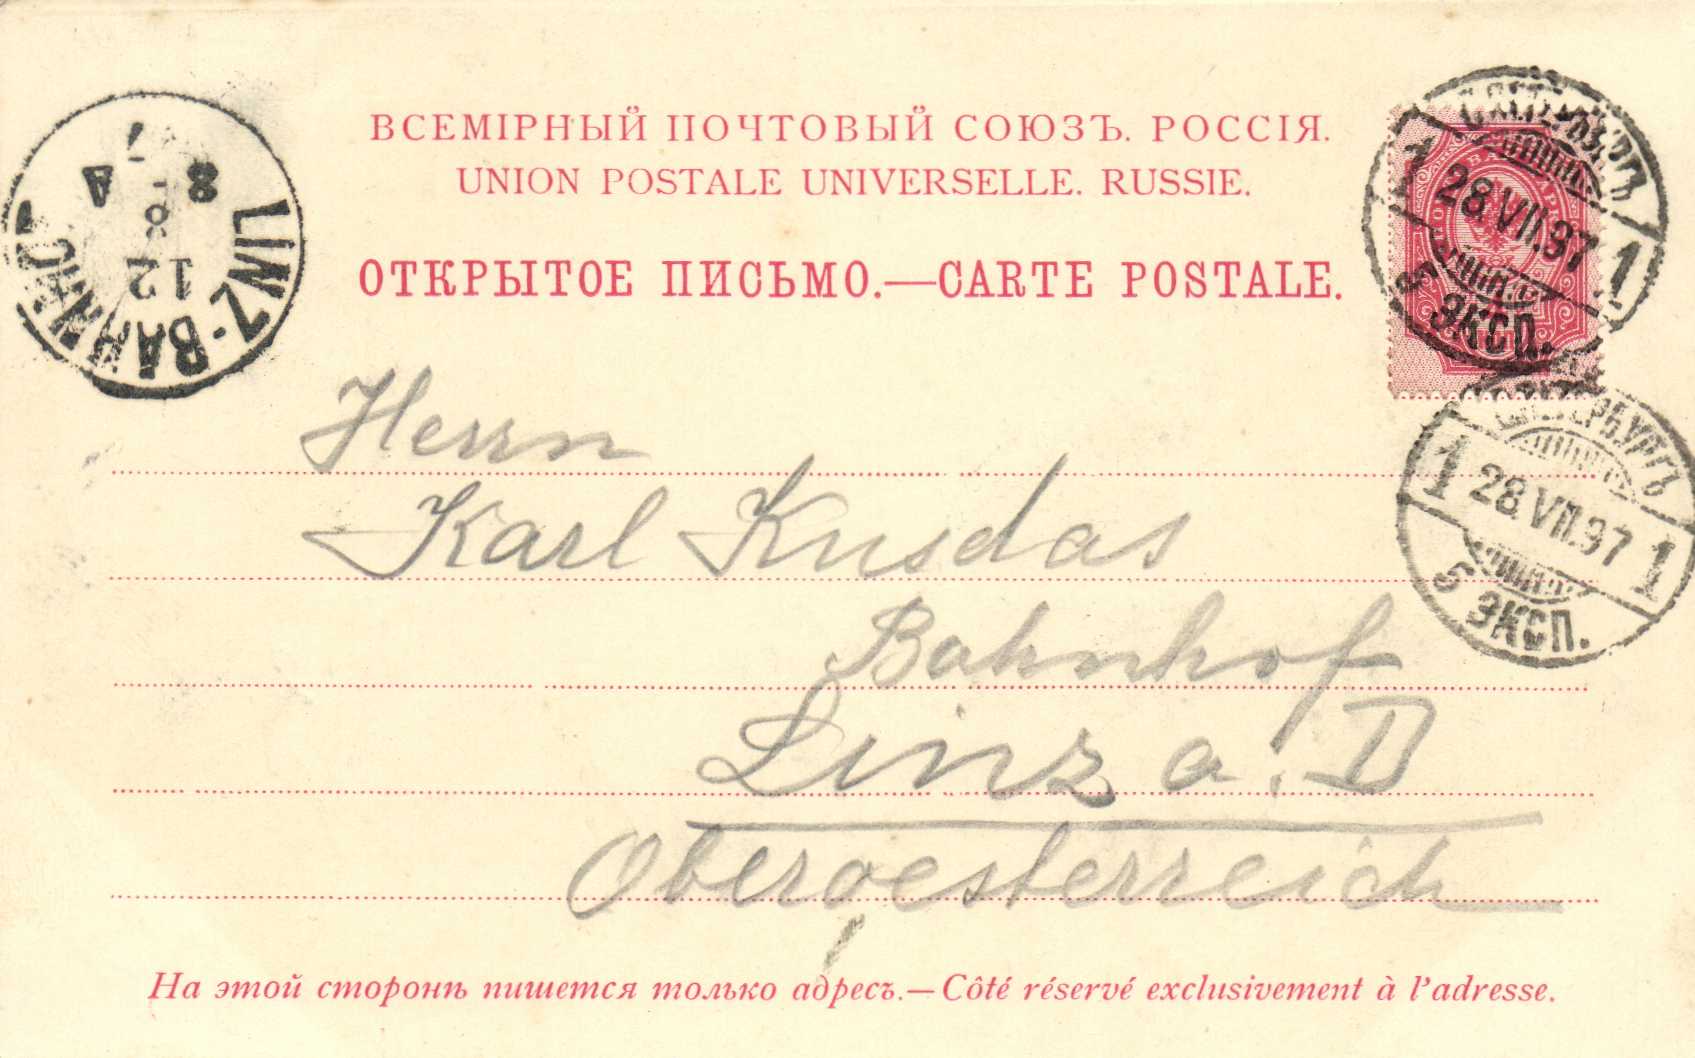 ВСЕМІРНЫЙ ПОЧТОВЫЙ СОЮЗЪ. РОССІЯ.
UNION POSTALE UNIVERSELLE. RUSSIE.
ОТКРЫТОЕ ПИСЬМО.—CARTE POSTALE.
LINZ-BAHNHOF
12
8
8 A
28.VII.97
1 1
5 ЭКСП.
1 28.VII.97 1
5 ЭКСП.
Herrn
Karl Kusdas
Bahnhof
Linz a. D
Oberoesterreich
На этой сторонѣ пишется только адресъ.—Côté réservé exclusivement à l'adresse.